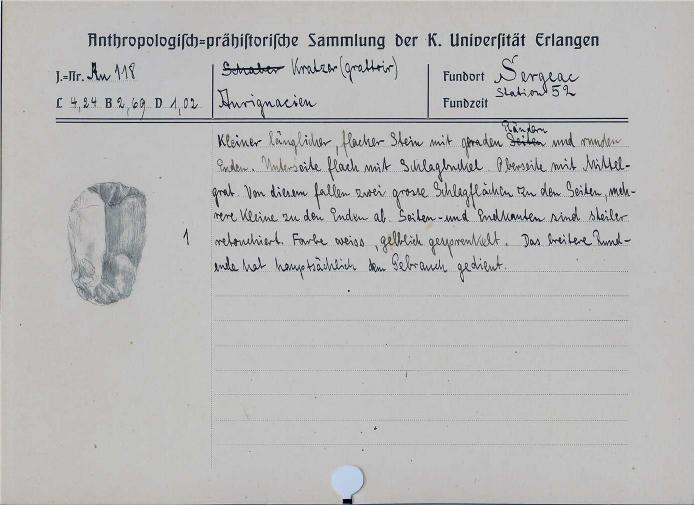 Anthropologisch=prähistorische Sammlung der K. Universität Erlangen
J.=Nr. Au 118
L 4,24 B 2,69 D 1,02
Schaber Kratzer (grattoir)
Aurignacien
Fundort Sergeac
Station 52
Fundzeit
Kleiner länglicher, flacher Stein mit geraden Seiten Rändern und runden
Enden. Unterseite flach mit Schlagbuckel. Oberseite mit Mittel-
grat. Von diesem fallen zwei grosse Schlagflächen zu den Seiten, meh-
rere kleine zu den Enden ab. Seiten- und Endkanten sind steiler
retouchiert. Farbe weiss, gelblich gesprenkelt. Das breitere Rund-
ende hat hauptsächlich dem Gebrauch gedient.
1